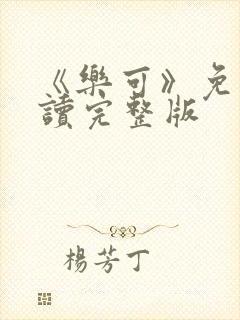 《樂可》免
讀完整版
楊芳丁